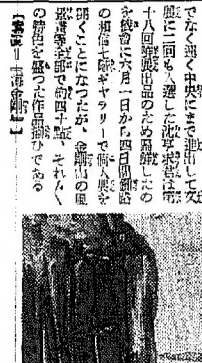 でなく遠く中央にまで進出して文
展に二回も入選した沈亨求君は第
十八回鮮展出品のため帰鮮したの
を機會に六月一日から四日間鍾路
の和信七階ギャラリーで個人展を
開くことになつたが、金剛山の風
景畫全部で約四十點、それ〴〵く
の特色を盛つた作品揃ひである
【寫眞＝海金剛】